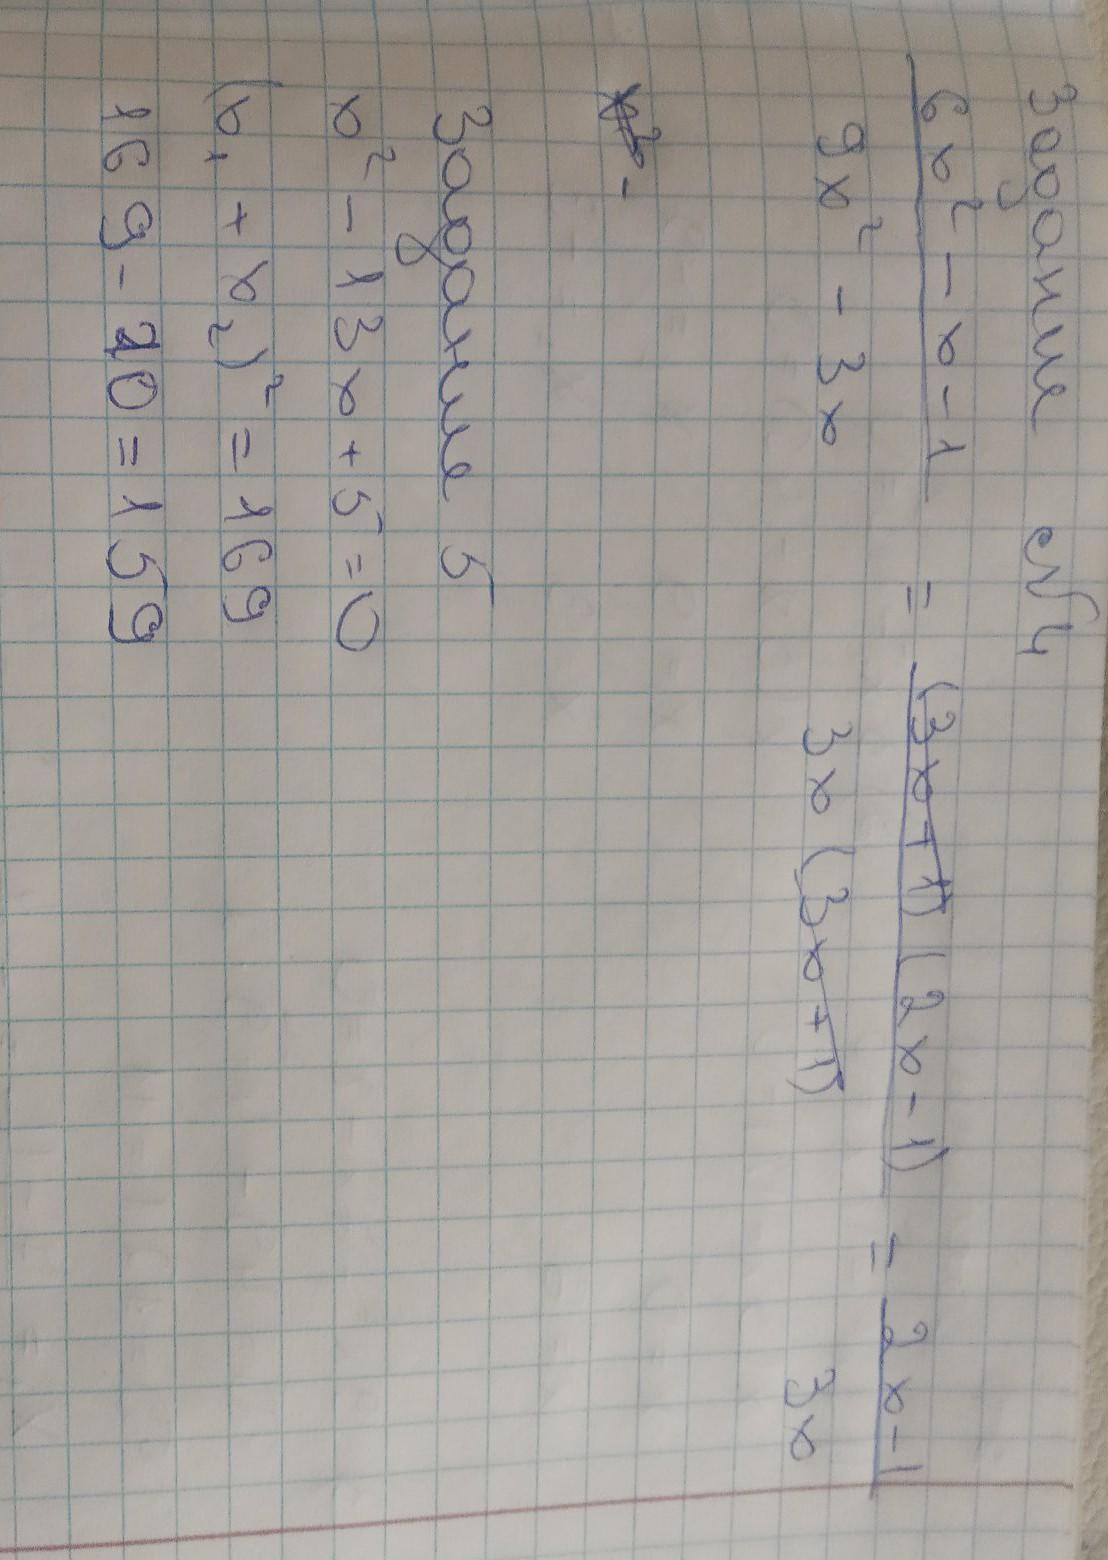 Задание №4
6x² - x - 1 = (3x + 1)(2x - 1) = 2x - 1
9x² - 3x 3x (3x + 1) 3x
Задание 5
x² - 13x + 5 = 0
(x₁ + x₂)² = 169
169 - 10 = 159